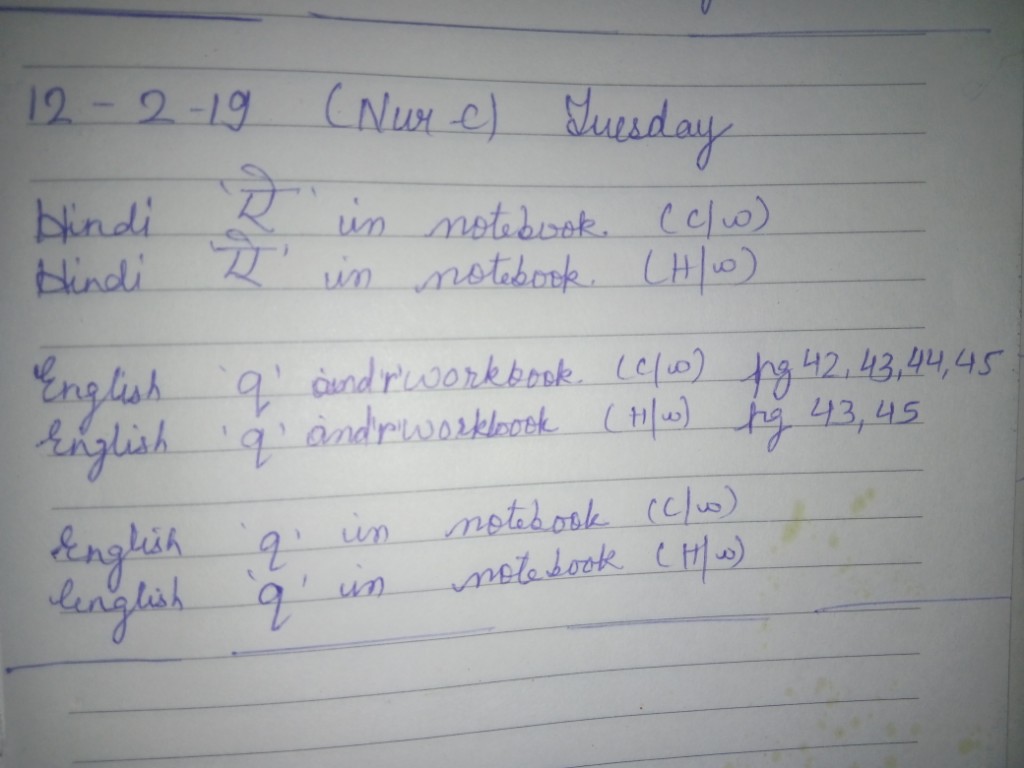 12 - 2 - 19 (Nur - C) Tuesday
Hindi 'ऐ' in notebook. (C/w)
Hindi 'ऐ' in notebook. (H/w)
English 'q' and 'r' workbook. (C/w) pg 42, 43, 44, 45
English 'q' and 'r' workbook (H/w) pg 43, 45
English 'q' in notebook (C/w)
English 'q' in notebook (H/w)